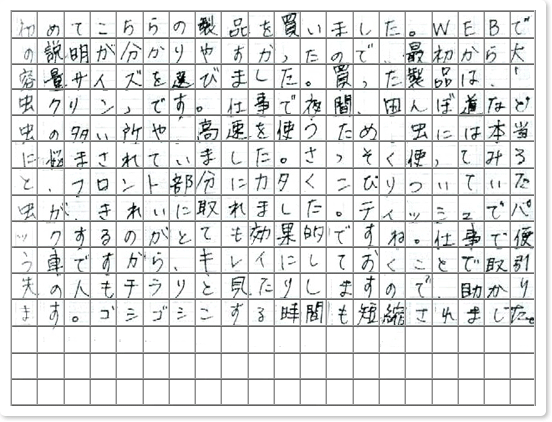 初めてこちらの製品を買いました。WEBで
の説明が分かりやすかったので、最初から大
容量サイズを選びました。買った製品は、「
虫クリン」です。仕事で夜間、田んぼ道など
虫の多い所や、高速を使うため、虫には本当
に悩まされていました。さっそく使ってみる
と、フロント部分にカタくこびりついていた
虫が、きれいに取れました。ティッシュでパ
ックするのがとても効果的ですね。仕事で使
う車ですから、キレイにしておくことで取引
先の人もチラリと見たりしますので、助かり
ます。ゴシゴシこする時間も短縮されました。